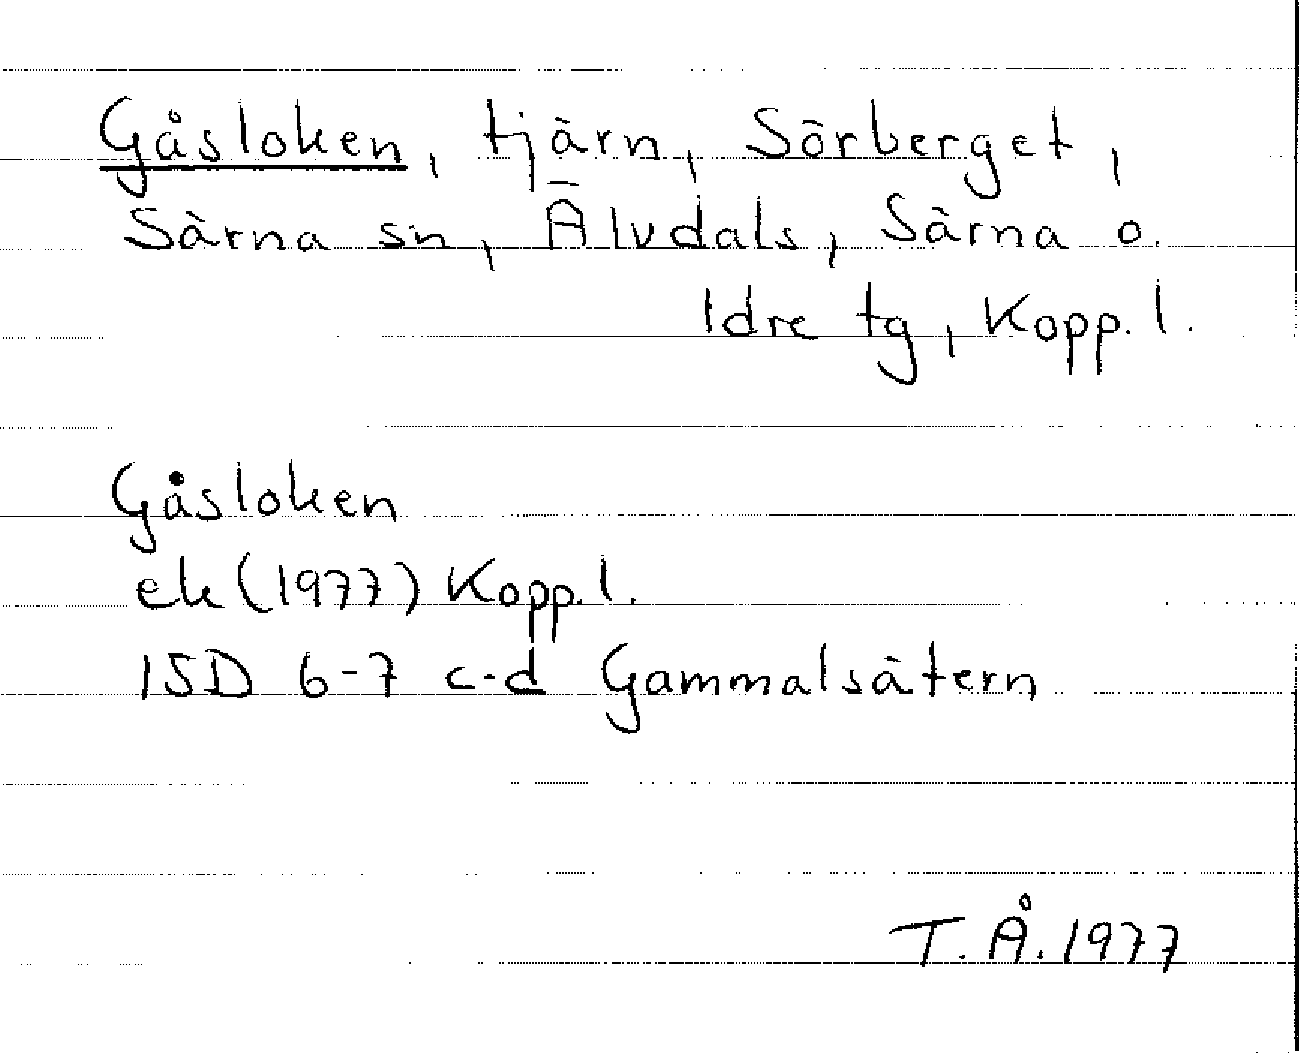 Gåsloken, tjärn, Sörberget,
Särna sn, Älvdals, Särna o.
Idre tg, Kopp. l.
Gåsloken
ek (1977) Kopp. l.
15D 6-7 c-d Gammalsätern
T. Å. 1977